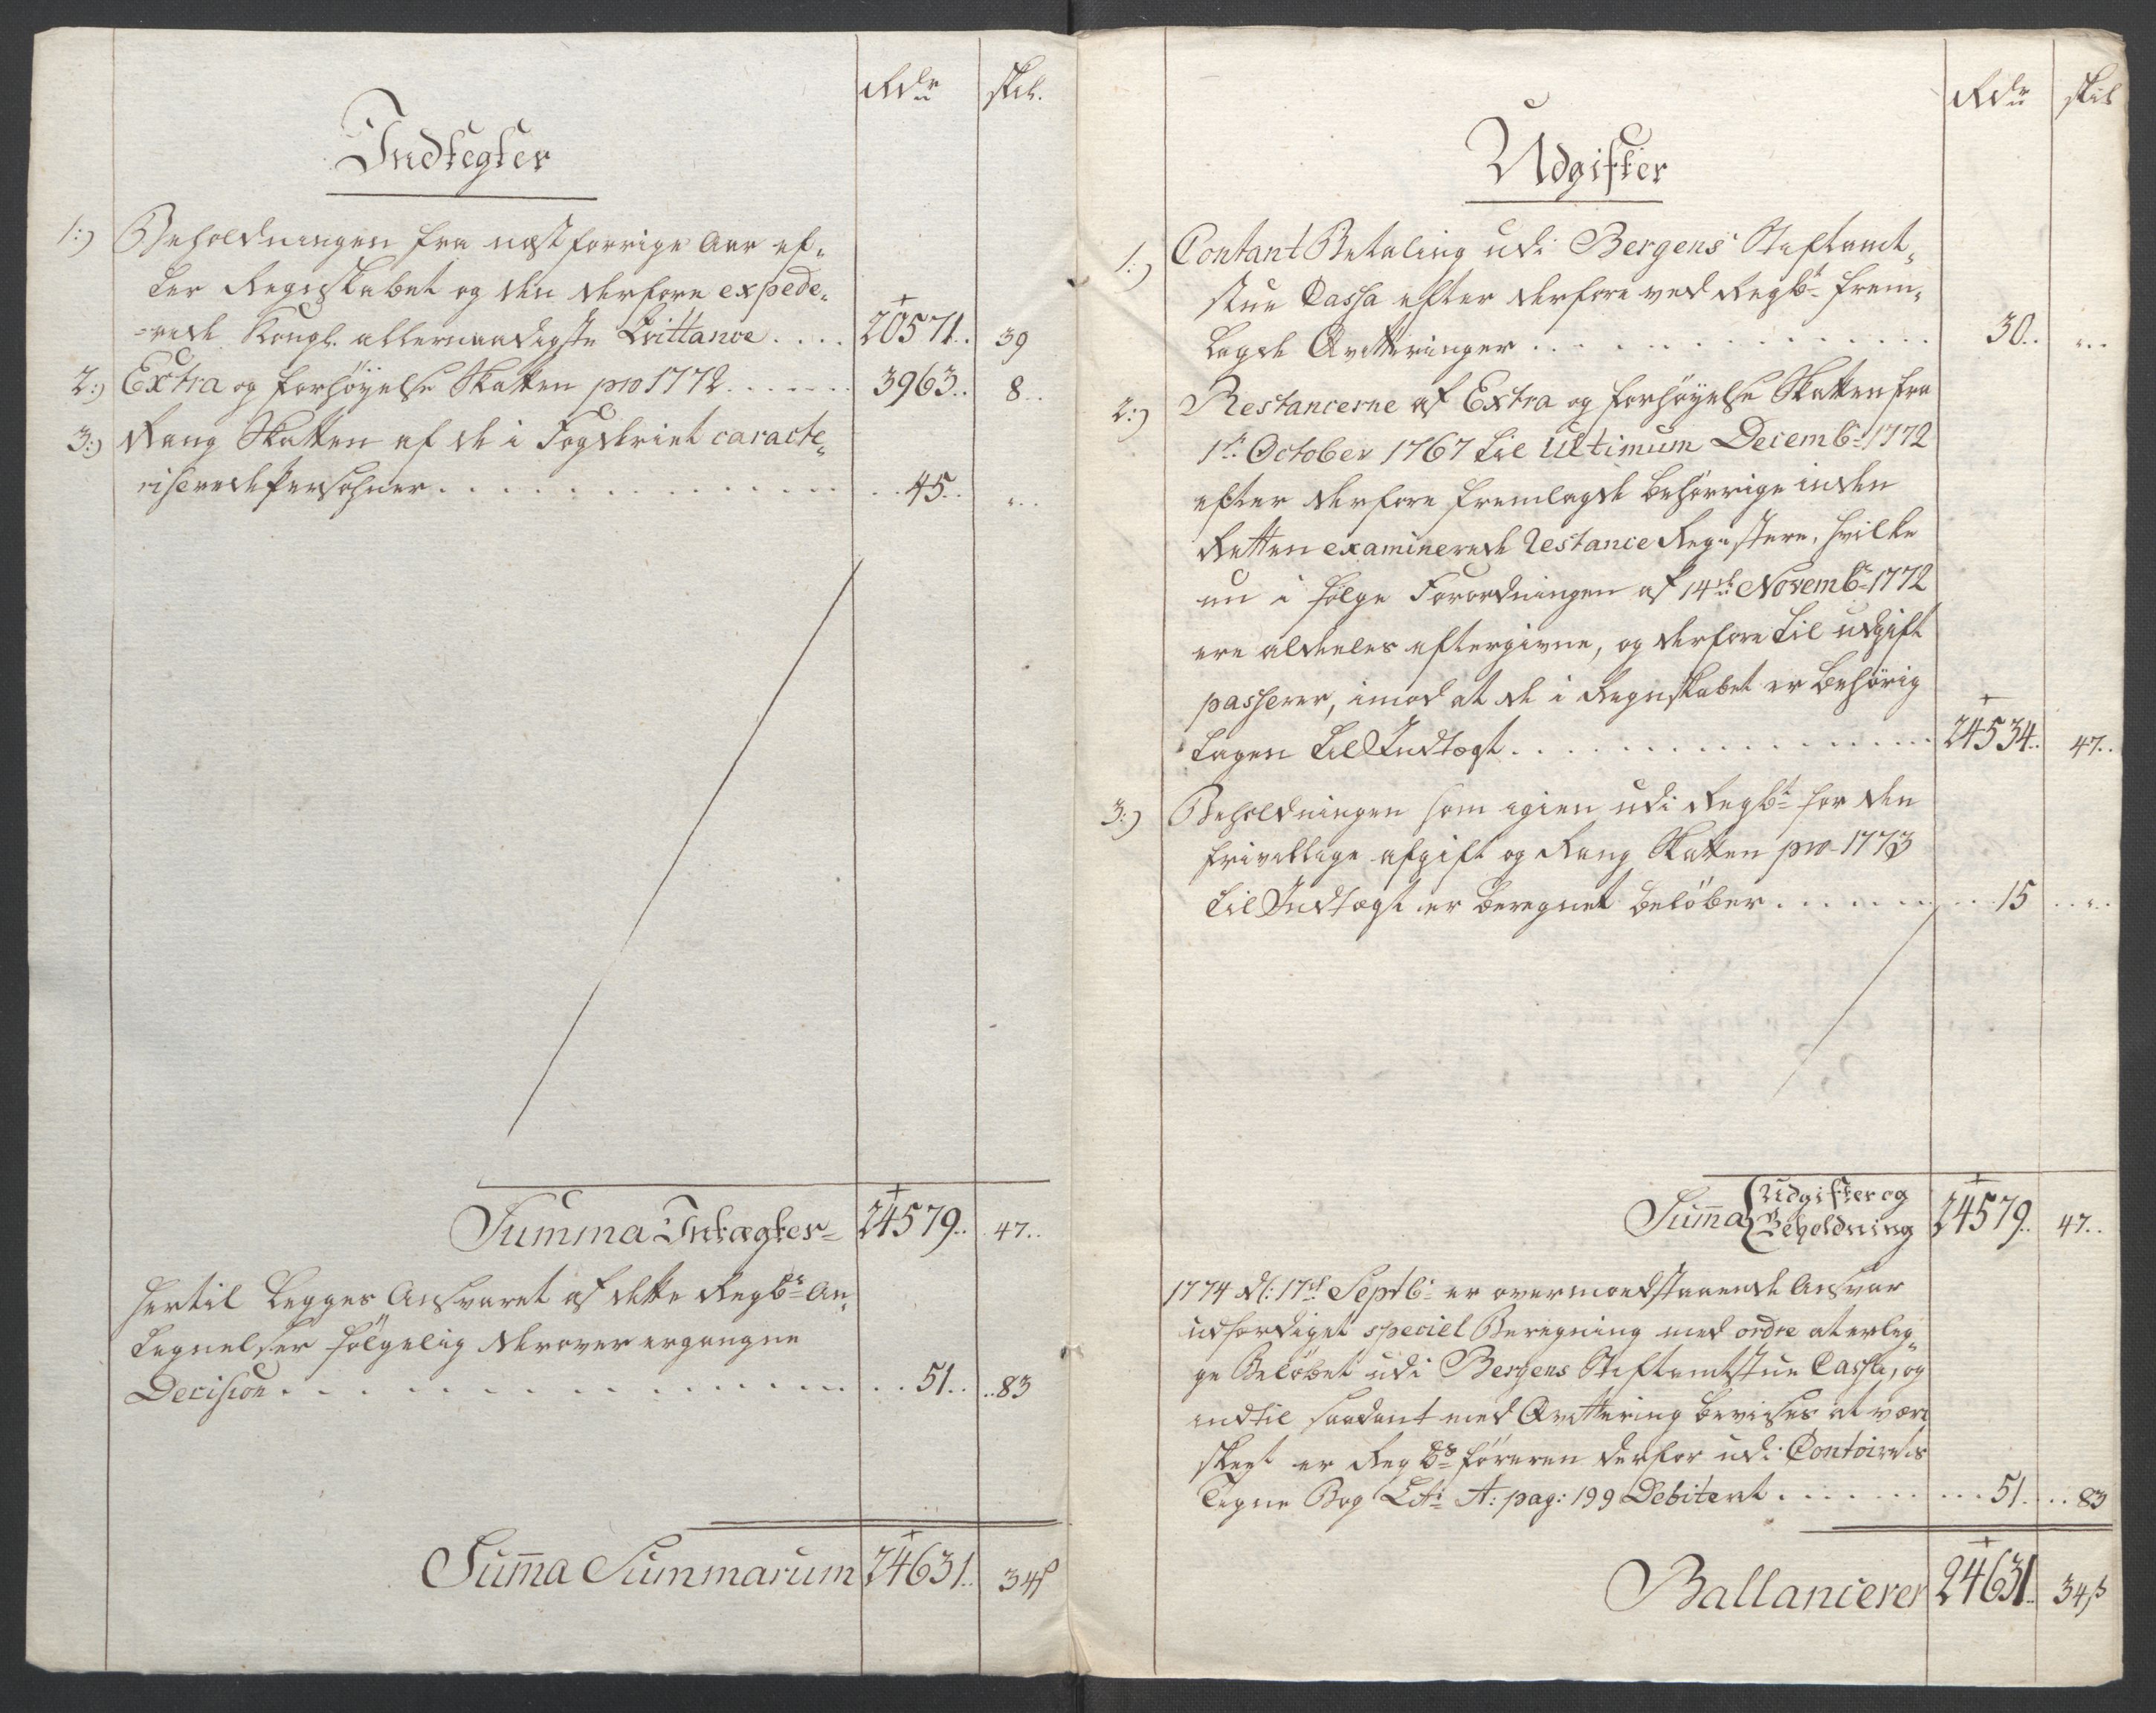 Rdr skil.
Indtegter
1:) Beholdningen fra næstforrige Aar ef-
ter Regnskabet og den derfore expede-
-rede Kongl. allernaadigste Qvittance .... 20571.. 39
2:) Extra og forhøyelse Skatten pro 1772 ...... 3963.. 8..
3:) Rang Skatten af de i Fogderiet caracte-
riserede Personer .............. 45.. "..
Summa Indtægter 24579.. 47..
Hertil Legges Ansvaret af dette Regbs An-
tegnelser følgelig derover ergangne
Decision .............. 51.. 83
Suma Summarum 24631.. 34s
Rdr skil
Udgifter
1:) Contant Betaling udi Bergens Stiftamt-
stue Cassa efter derfore ved Regbt frem-
lagde Qvitteringer .............. 30.. "..
2:) Restancerne af Extra og forhøyelse Skatten fra
1te October 1767 til Ultimum Decembr 1772
efter derfore fremlagde behørige inden
Retten examinerede Restance Registere, hvilke
nu i følge Forordningen af 14de Novembr 1772
ere aldeeles eftergivne, og derfore til udgift
passerer, imod at de i Regnskabet er behørig
tagen til Indtægt .............. 24534.. 47..
3:) Beholdningen som igien udi Regbt for den
frivillige afgift og Rang Skatten pro 1773
til Indtægt er beregnet beløber ........ 15 ..".
Suma Udgifter og Beholdning 24579.. 47..
1774 d: 17de Septbr er overmeldstaaende Ansvar
udferdiget speciel Beregning med ordre at erleg-
ge Beløbet udi Bergens Stiftamtstue Cassa, og
indtil saadant med Qvittering bevises at være
skeet er Regbsføreren derfor udi Contoirets
Tegne Bog Litr A: pag: 199 Debiteret ........ 51... 83
Ballancerer 24631.. 34s